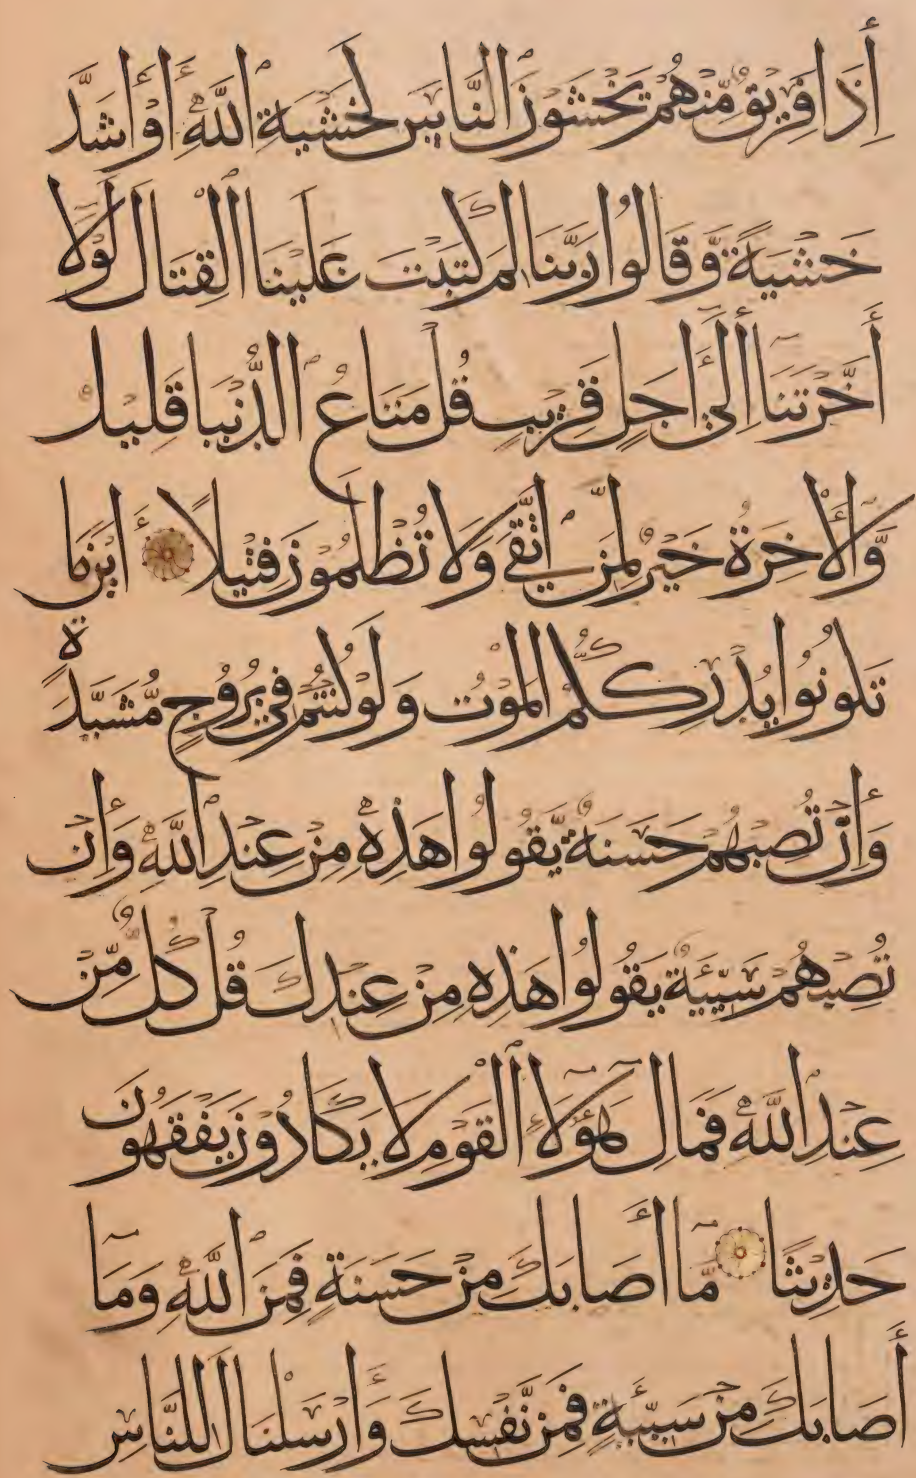 إِذَا فَرِيقٌ مِّنْهُمْ يَخْشَوْنَ النَّاسَ كَخَشْيَةِ اللَّهِ أَوْ أَشَدَّ
خَشْيَةً وَّقَالُوا رَبَّنَا لِمَ كَتَبْتَ عَلَيْنَا الْقِتَالَ لَوْلَا
أَخَّرْتَنَا إِلَىٰ أَجَلٍ قَرِيبٍ قُلْ مَتَاعُ الدُّنْيَا قَلِيلٌ
وَّالْآخِرَةُ خَيْرٌ لِّمَنِ اتَّقَىٰ وَلَا تُظْلَمُونَ فَتِيلًا ۝ أَيْنَمَا
تَكُونُوا يُدْرِككُّمُ الْمَوْتُ وَلَوْ كُنتُمْ فِي بُرُوجٍ مُّشَيَّدَةٍ
وَإِن تُصِبْهُمْ حَسَنَةٌ يَّقُولُوا هَٰذِهِ مِنْ عِندِ اللَّهِ وَإِن
تُصِبْهُمْ سَيِّئَةٌ يَقُولُوا هَٰذِهِ مِنْ عِندِكَ قُلْ كُلٌّ مِّنْ
عِندِ اللَّهِ فَمَالِ هَٰؤُلَاءِ الْقَوْمِ لَا يَكَادُونَ يَفْقَهُونَ
حَدِيثًا ۝ مَّا أَصَابَكَ مِنْ حَسَنَةٍ فَمِنَ اللَّهِ وَمَا
أَصَابَكَ مِن سَيِّئَةٍ فَمِن نَّفْسِكَ وَأَرْسَلْنَاكَ لِلنَّاسِ